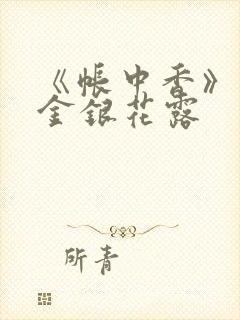 《帐中香》
金银花露
所青